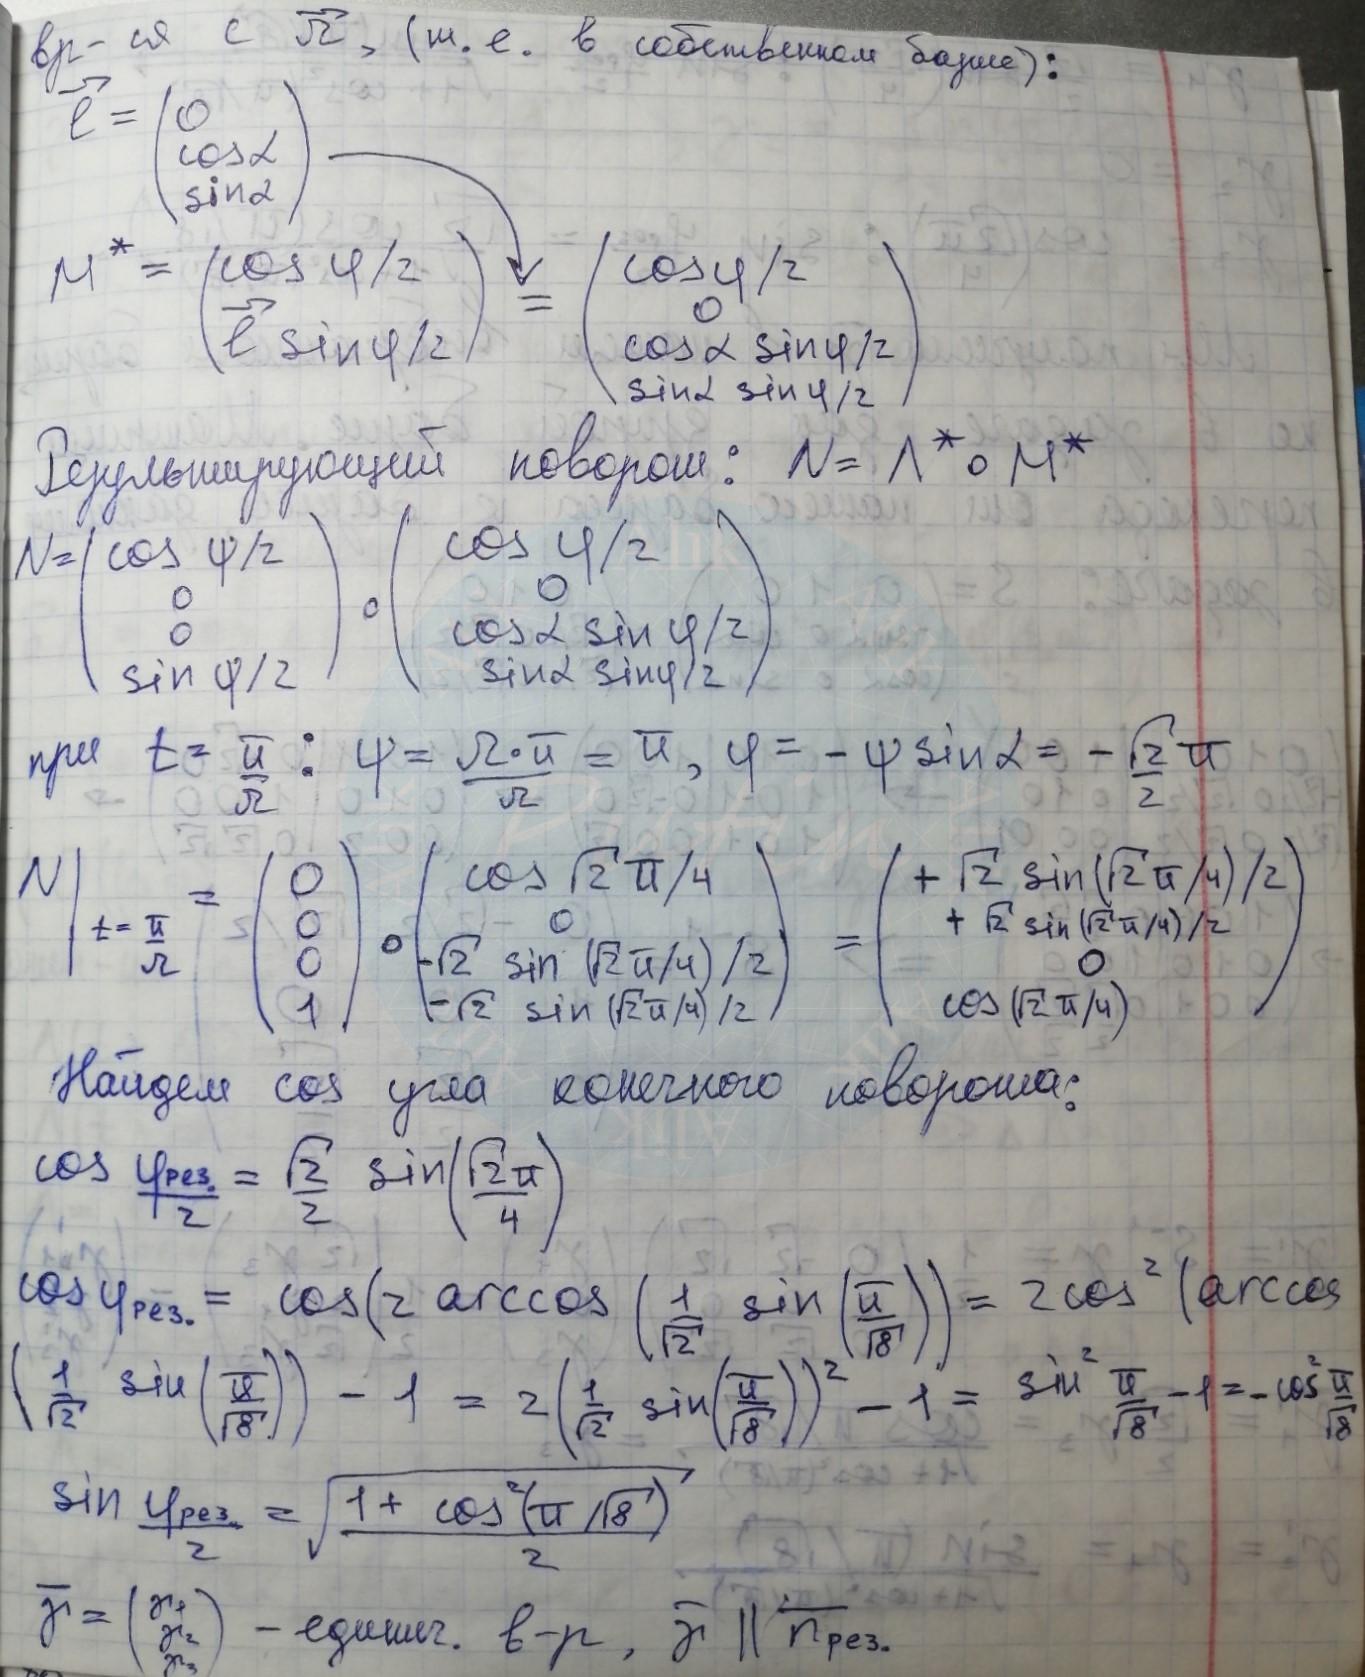 вр-ся с Ω⃗, (т.е. в собственном базисе):
l⃗ = (0
cosα
sinα)
M* = (cos φ/2
l⃗ sinφ/2) = (cosφ/2
0
cosα sinφ/2
sinα sinφ/2)
Результирующий поворот: N = Λ* ∘ M*
N = (cos ψ/2
0
0
sin ψ/2) ∘ (cos φ/2
0
cosα sin φ/2
sinα sinφ/2)
при t = π/Ω : ψ = Ω·π/Ω = π, φ = -ψ sinα = -√2/2 π
N|t=π/Ω = (0
0
0
1) ∘ (cos √2π/4
0
-√2 sin (√2π/4)/2
-√2 sin (√2π/4)/2) = (+√2 sin(√2π/4)/2
+√2 sin(√2π/4)/2
0
cos(√2π/4))
Найдем cos угла конечного поворота:
cos φрез./2 = √2/2 sin(√2π/4)
cosφрез. = cos(2 arccos (1/√2 sin (π/√8))) = 2cos² (arccos
(1/√2 sin(π/√8))) - 1 = 2(1/√2 sin(π/√8))² - 1 = sin² π/√8 - 1 = -cos² π/√8
sin φрез./2 = √(1 + cos²(π/√8)/2)
γ̅ = (γ1
γ2
γ3) - единич. в-р, γ̅ || n̅рез.